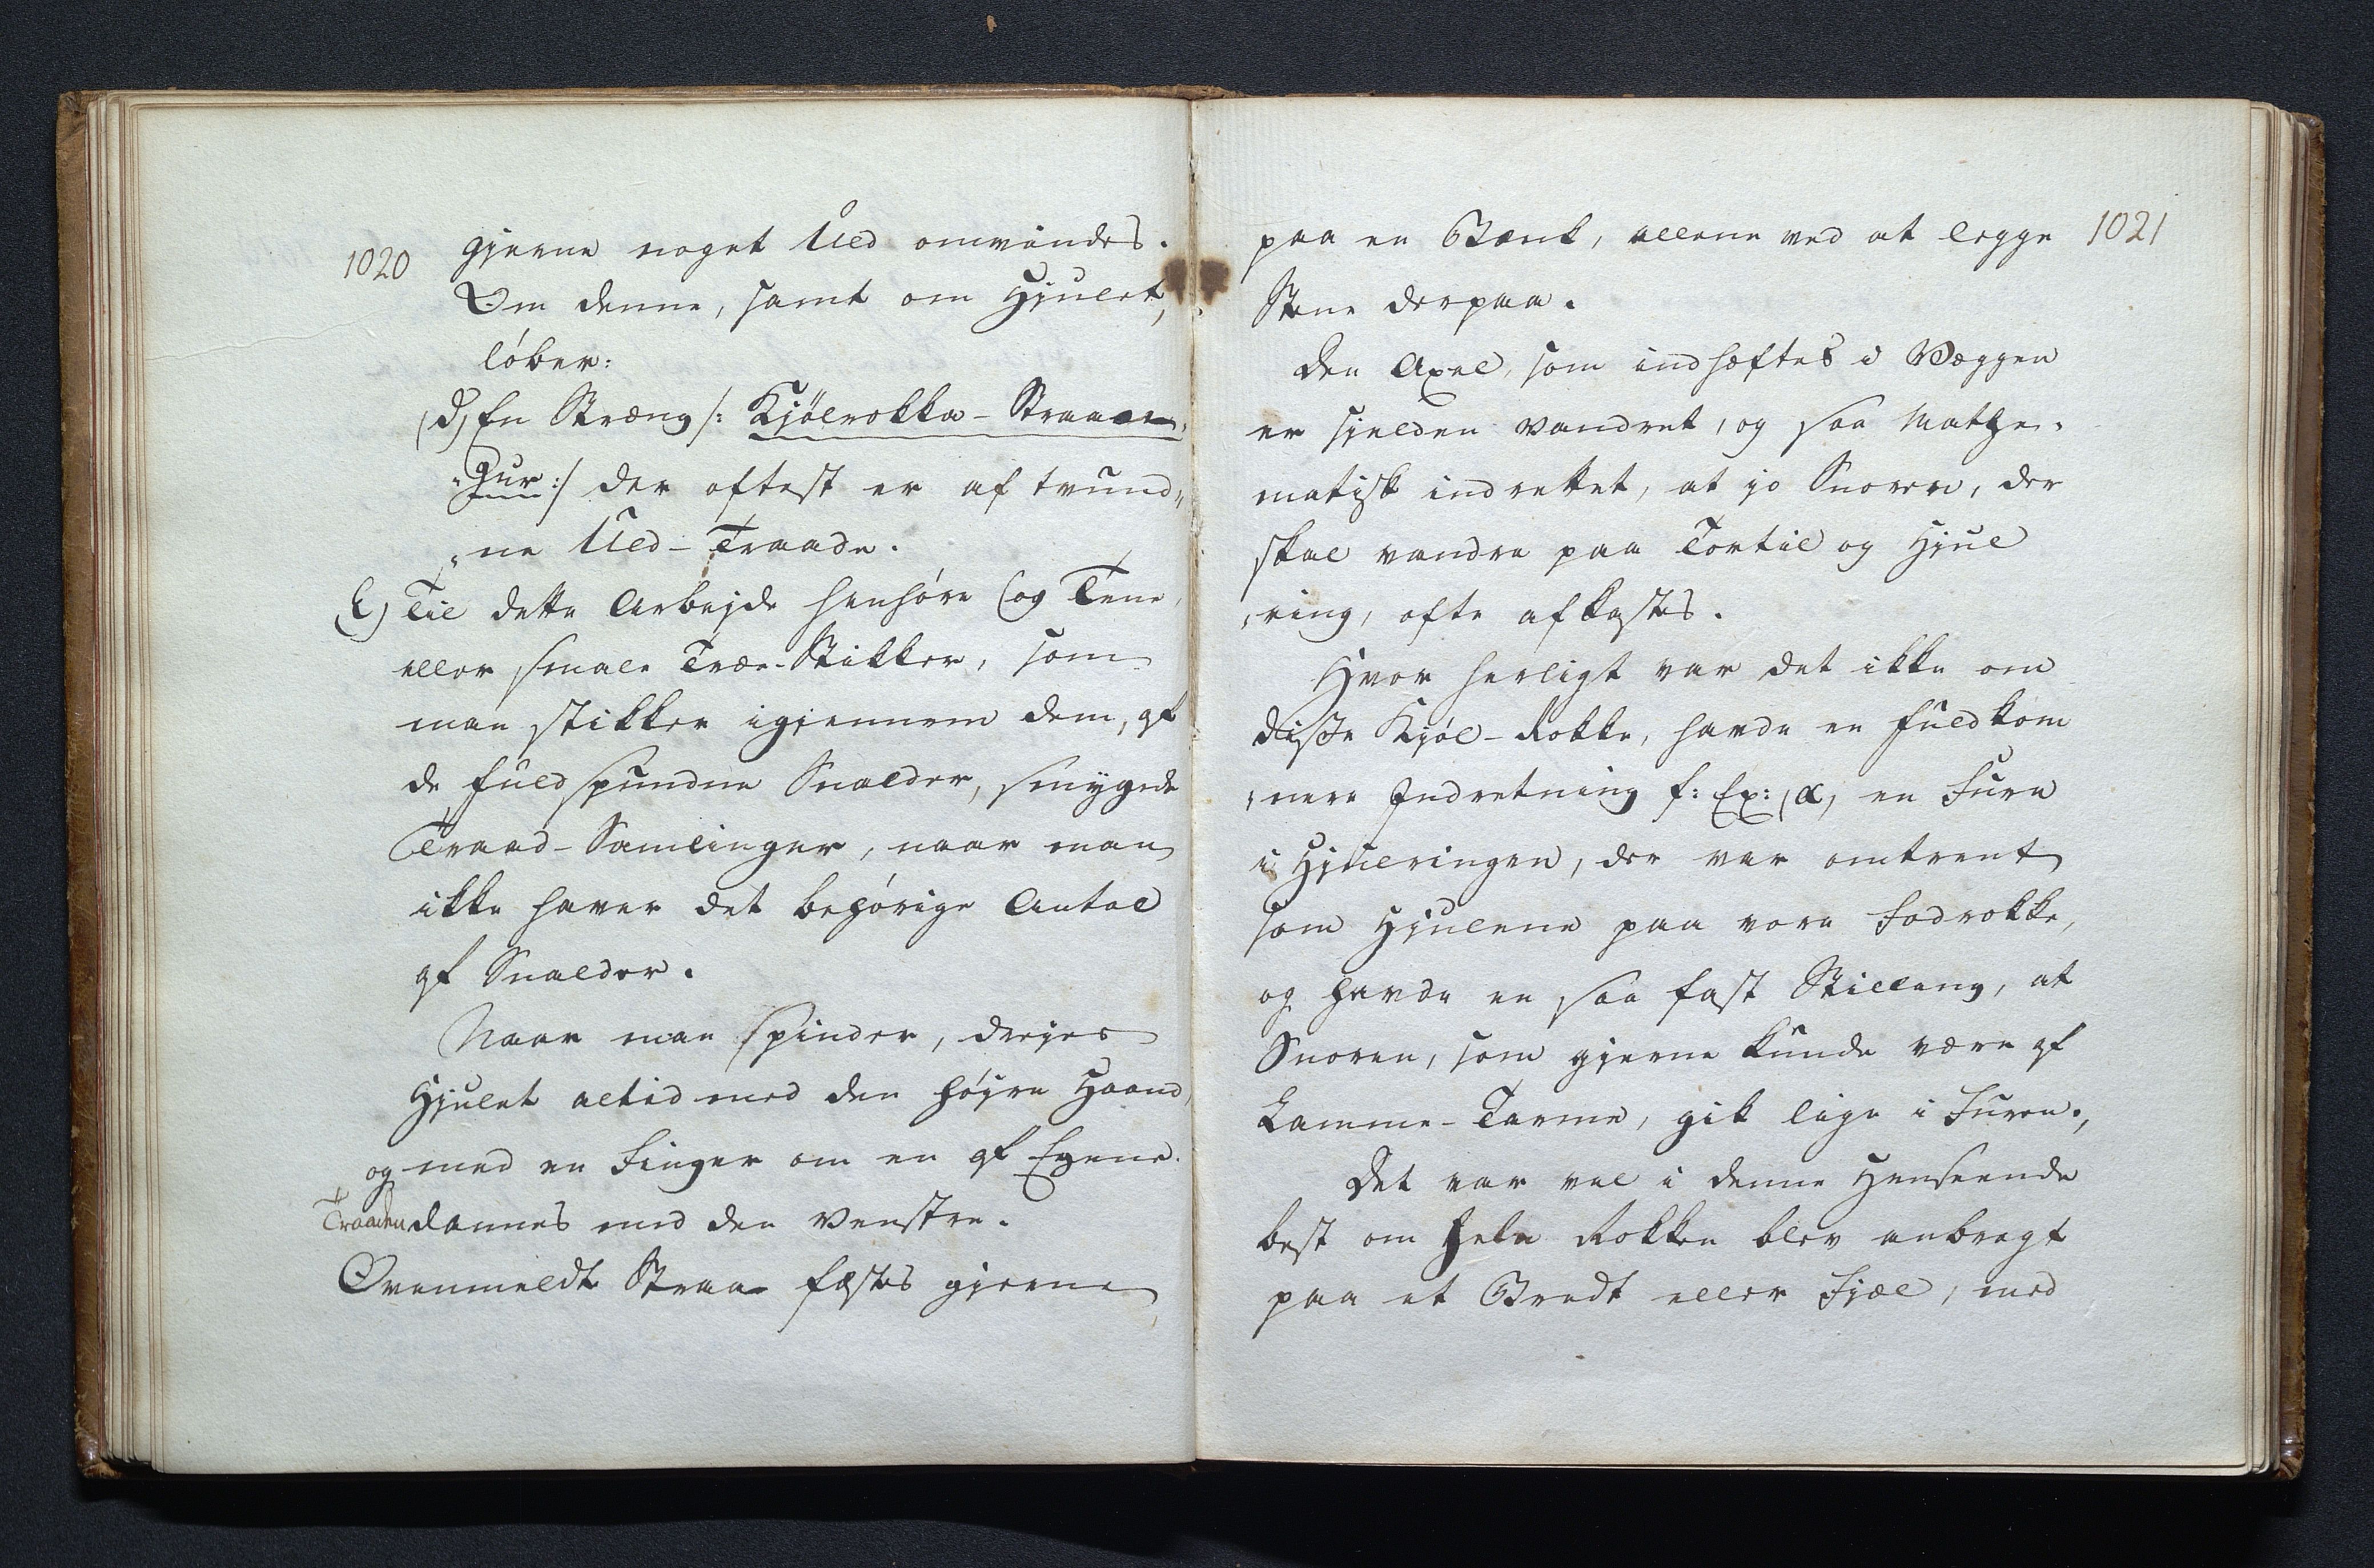 1020
gjerne noget Uld omvindes.
Om denne, samt om Hjulet,
løber:
(d) En Streng /: Kjölrokka-Straaen,
"gur :/ der oftest er af tvund„
„ne Uld-Traade.
E) Til dette Arbejde henhøre (og Tene,
eller smale Træ-Stikker, som
man stikker igjennem dem, af
de fuldspundne Snælder, smygede
Traad-Samlinger, naar man
ikke haver det behørige Antal
af Snælder.
Naar man spinder, drejes
Hjulet altid med den højre Haand,
og med en Finger om en af Egene.
Traaden dannes med den venstre.
Ovenmeldte Straa- fæstes gjerne
1021
paa en Bænk, allene ved at legge
Stene derpaa.
Den Axel, som indhæftes i Væggen
er sjelden vandret, og saa Mathe„
matisk indrettet, at jo Snoren, der
skal vandre paa Tortil og Hjul
„ring, ofte afkastes.
Hvor herligt var det ikke om
disse Kjøl-Rokke, havde en fuldkom
„nere Indretning f: Ex: (α, en Fure
i Hjulringen, der var omtrent
som Hjulene paa vore Fodrokke,
og havde en saa fast Stilling, at
Snoren, som gjerne kunde være af
Lamme-Tarme, gik lige i Furen.,
Det var vel i denne Henseende
best om hele Rokken blev anbragt
paa et Bredt eller Fjæl, med